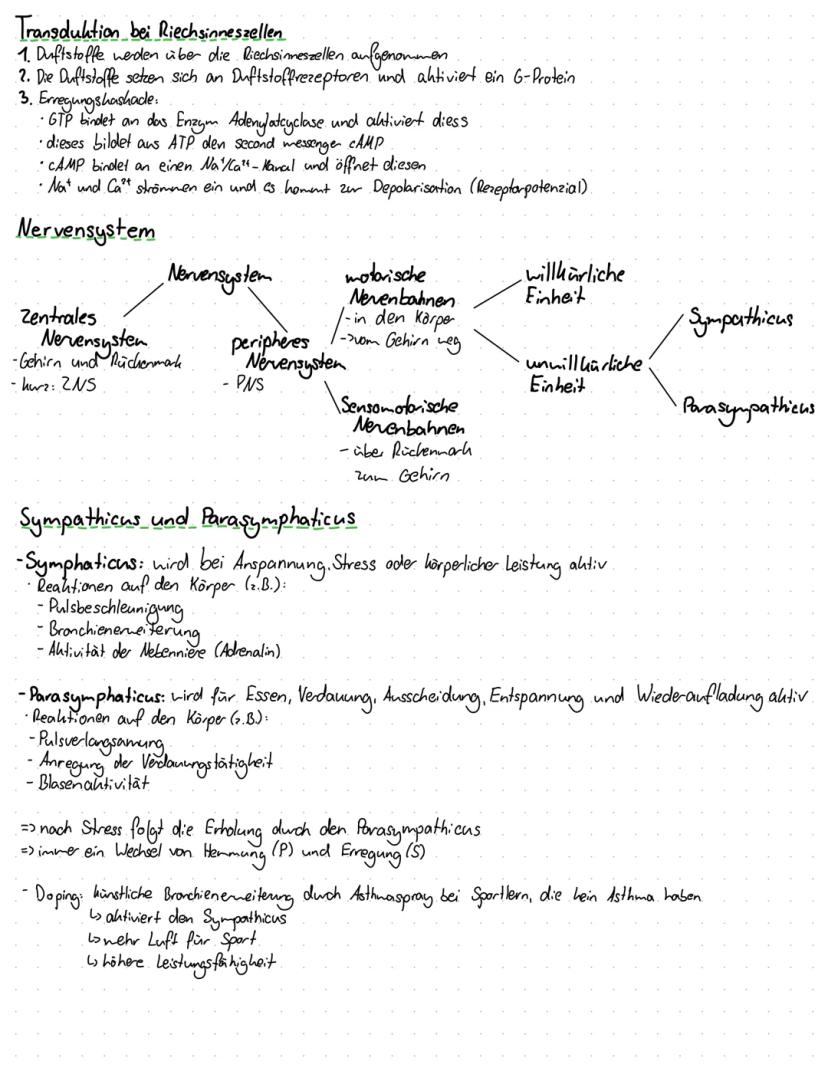 Transduktion bei Riechsinneszellen
1. Duftstoffe werden über die Riechsinneszellen aufgenommen
2. Die Duftstoffe setzen sich an Duftstoffrezeptoren und aktiviert ein G-Protein
3. Erregungskaskade:
· GTP bindet an das Enzym Adenylatcyclase und aktiviert diess
· dieses bildet aus ATP den second messenger cAMP
· cAMP bindet an einen Na⁺/Ca²⁺-Kanal und öffnet diesen
· Na⁺ und Ca²⁺ strömmen ein und es kommt zur Depolarisation (Rezeptorpotenzial)
Nervensystem
Nervensystem
Zentrales
Nervensystem
-Gehirn und Rückenmark
- kurz: ZNS
peripheres
Nervensystem
- PNS
motorische
Nervenbahnen
-in den Körper
->vom Gehirn weg
Sensomotorische
Nervenbahnen
- über Rückenmark
zum Gehirn
willkürliche
Einheit
unwillkürliche
Einheit
Sympathicus
Parasympathicus
Sympathicus und Parasymphaticus
-Symphaticus: wird bei Anspannung, Stress oder körperlicher Leistung aktiv
· Reaktionen auf den Körper (z.B.):
- Pulsbeschleunigung
- Bronchienerweiterung
- Aktivität der Nebenniere (Adrenalin)
-Parasymphaticus: wird für Essen, Verdauung, Ausscheidung, Entspannung und Wiederaufladung aktiv
· Reaktionen auf den Körper (z.B):
- Pulsverlangsamung
- Anregung der Verdauungstätigkeit
- Blasenaktivität
=> nach Stress folgt die Erholung durch den Parasympathicus
=> immer ein Wechsel von Hemmung (P) und Erregung (S)
- Doping: künstliche Bronchienerweiterung durch Asthmaspray bei Sportlern, die kein Asthma haben
↳ aktiviert den Sympathicus
↳ mehr Luft für Sport
↳ höhere Leistungsfähigkeit